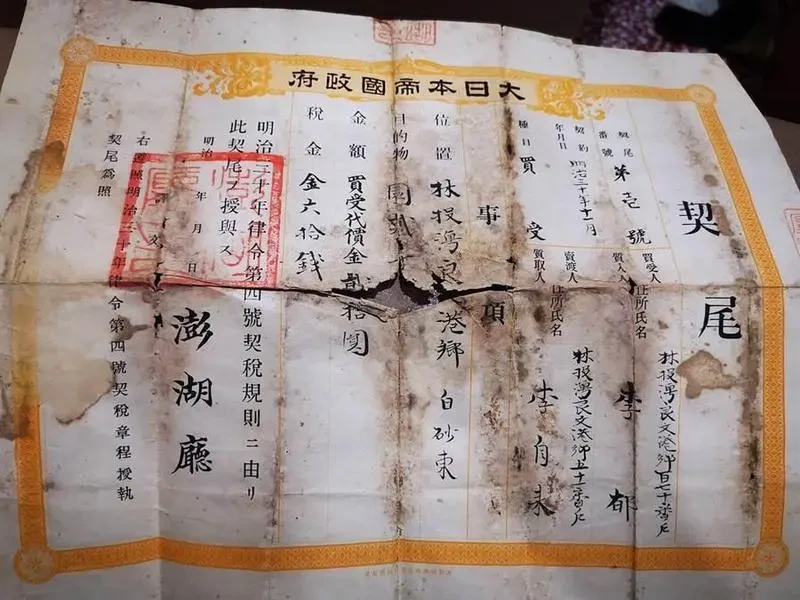 大日本帝國政府
契尾
買受人
質入人
住所氏名
林投澚良文港鄉百七十番戶
李郁
賣渡人
質取人
住所氏名
林投澚良文港鄉五十一番戶
李自来
契尾番號 第壱號
契約年月日 明治三十年十一月
種目 買受
事項
位置 林投澚良 港鄉 白砂東
目的物 園
金額 買受代價金貳拾圓
税金 金六拾錢
明治三十年律令第四號契稅規則ニ由リ
此契尾ヲ授與ス
明治 年 月 日
澎湖廳
右遵照明治三十年律令第四號契稅章程授執
契尾爲照